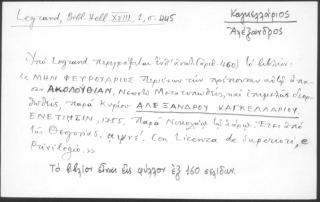 Legrand, Bibl. Hell. XVIII, 1, σ. 445
Καγκελλάριος
Αλέξανδρος
Υπό Legrand περιγράφεται υπ' αριθ. (460) το βιβλίον:
« ΜΗΝ ΦΕΥΡΟΥΑΡΙΟΣ Περιέχων την πρέπουσαν αυτώ άπα-
σαν ΑΚΟΛΟΥΘΙΑΝ, Νεωστί Μετατυπωθείς, και επιμελώς διορ-
θωθείς, παρά Κυρίου ΑΛΕΞΑΝΔΡΟΥ ΚΑΓΚΕΛΛΑΡΙΟΥ.
ΕΝΕΤΙΗΣΙΝ, 1755. Παρά Νικολάω τω Σάρω. Έτει από
της Θεογονίας. αψνε'. Con Licenza de Superiori, e
Privilegio. »
Το βιβλίον είναι εις φύλλον εξ 160 σελίδων.